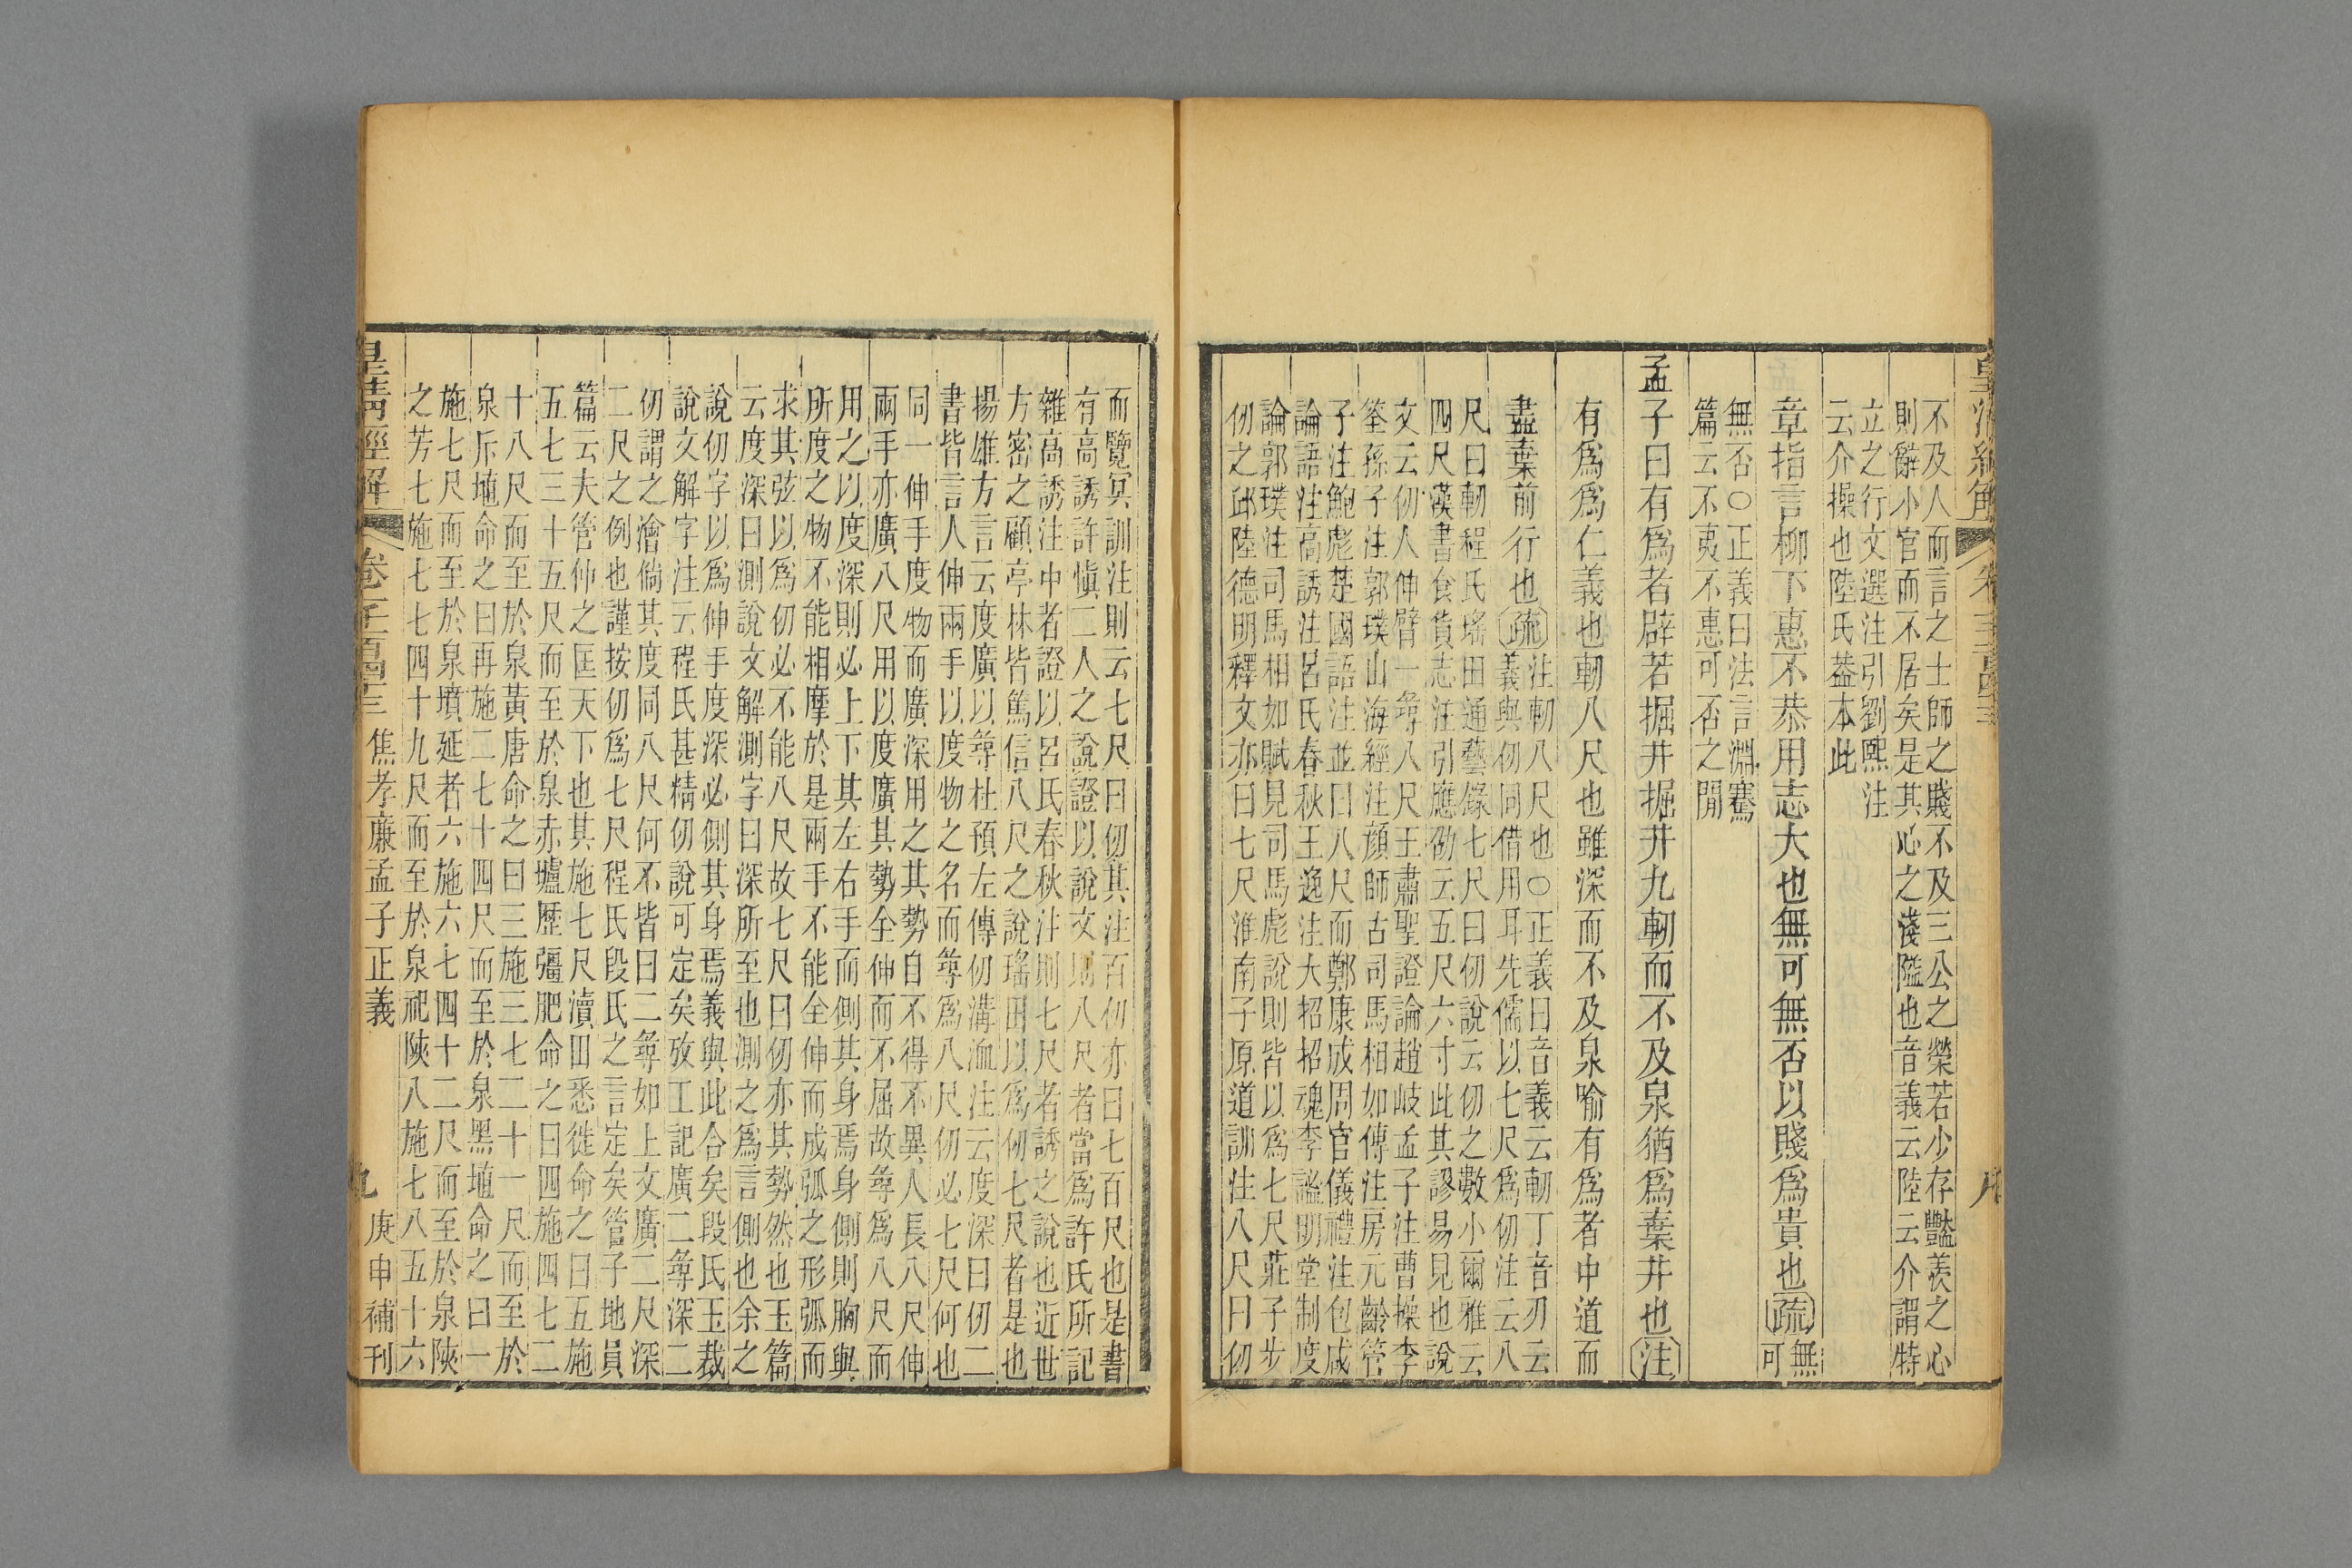 不及人而言之士師之賤不及三公之榮若少存豔羨之心
則辭小官而不居矣是其心之淺隘也音義云陸云介謂特
立之行文選注引劉熙注
云介操也陸氏葢本此
章指言柳下惠不恭用志大也無可無否以賤爲貴也疏無
可
無否○正義曰法言淵騫
篇云不夷不惠可否之閒
孟子曰有爲者辟若掘井掘井九軔而不及泉猶爲棄井也注
有爲爲仁義也軔八尺也雖深而不及泉喻有爲者中道而
盡棄前行也疏注軔八尺也○正義曰音義云軔丁音刃云
義與仞同借用耳先儒以七尺爲仞注云八
尺曰軔程氏瑤田通藝錄七尺曰仞說云仞之數小爾雅云
四尺漢書食貨志注引應劭云五尺六寸此其謬易見也說
文云仞人伸臂一尋八尺王肅聖證論趙岐孟子注曹操李
筌孫子注郭璞山海經注顏師古司馬相如傳注房元齡管
子注鮑彪楚國語注並曰八尺而鄭康成周官儀禮注包咸
論語注高誘注呂氏春秋王逸注大招招魂李謐明堂制度
論郭璞注司馬相如賦見司馬彪說則皆以爲七尺莊子步
仞之邱陸德明釋文亦曰七尺淮南子原道訓注八尺曰仞
而覽冥訓注則云七尺曰仞其注百仞亦曰七百尺也是書
有高誘許愼二人之說證以說文則八尺者當爲許氏所記
雜高誘注中者證以呂氏春秋注則七尺者誘之說也近世
方密之顧亭林皆篤信八尺之說瑤田以爲仞七尺者是也
揚雄方言云度廣以尋杜預左傳仞溝洫注云度深曰仞二
書皆言人伸兩手以度物之名而尋爲八尺仞必七尺何也
同一伸手度物而廣深用之其勢自不得不異人長八尺伸
兩手亦廣八尺用以度廣其勢全伸而不屈故尋爲八尺而
用之以度深則必上下其左右手而側其身焉身側則胸與
所度之物不能相摩於是兩手不能全伸而成弧之形弧而
求其弦以爲仞必不能八尺故七尺曰仞亦其勢然也玉篇
云度深曰測說文解測字曰深所至也測之爲言側也余之
說仞字以爲伸手度深必側其身焉義與此合矣段氏玉裁
說文解字注云程氏甚精仞說可定矣攷工記廣二尋深二
仞謂之澮倘其度同八尺何不皆曰二尋如上文廣二尺深
二尺之例也謹按仞爲七尺程氏段氏之言定矣管子地員
篇云夫管仲之匡天下也其施七尺瀆田悉徙命之曰五施
五七三十五尺而至於泉赤壚歷彊肥命之曰四施四七二
十八尺而至於泉黃唐命之曰三施三七二十一尺而至於
泉斥埴命之曰再施二七十四尺而至於泉黑埴命之曰一
施七尺而至於泉墳延者六施六七四十二尺而至於泉陝
之芳七施七七四十九尺而至於泉祀陝八施七八五十六
皇清經解 卷一千一百四十三 焦孝廉孟子正義 九 庚申補刊